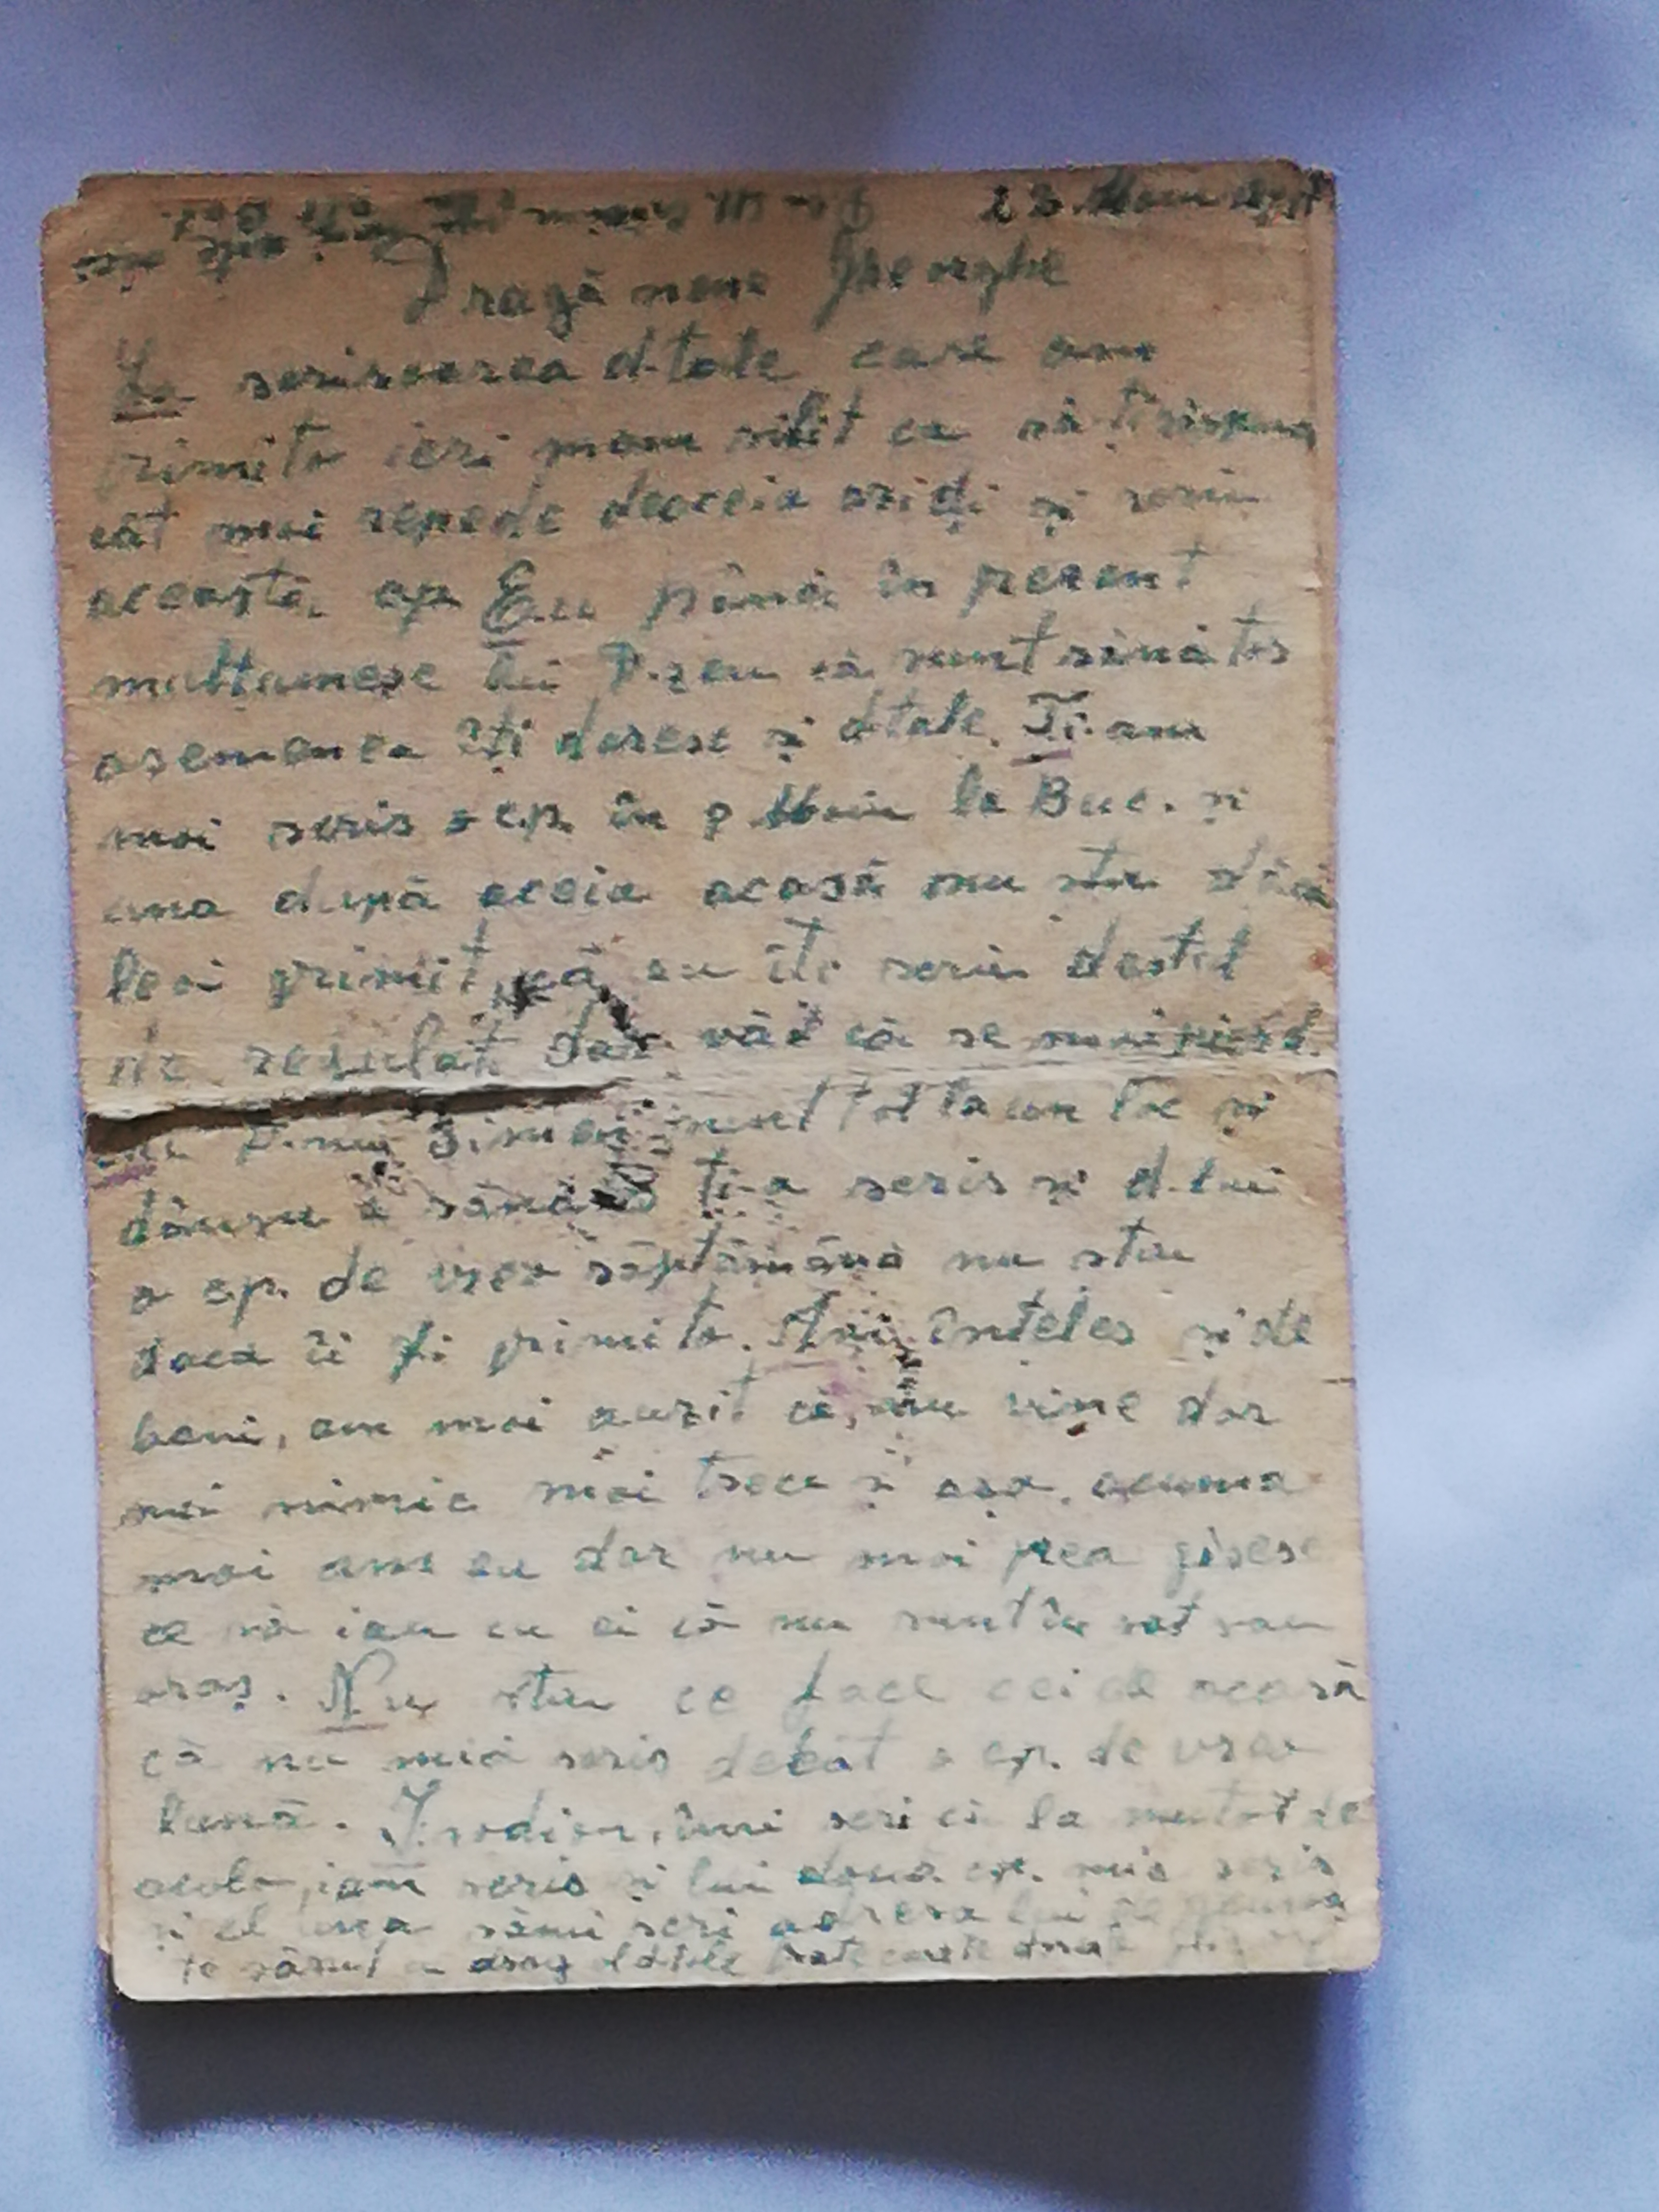 23
Dragă nene Gheorghe
La scrisoarea d-tale care am
primito ieri mam silit ca să
cât mai repede deaceia și scriu
aceasta cp Eu până în prezent
multumesc lui D-zeu că sunt sănătos
asemenea îți doresc și dtale. Ti-am
mai scris o cp. în 9 la Buc. și
una după aceia acasă nu stiu dăcă
leai primit, că eu îți scriu destul
de regulat dar văd că se
cu Simion sunt tot la un loc și
dânsu e sănătos ti-a scris și d-lui
o cp. de vreo săptămână nu stiu
daca îi fi primito. Am înteles și de
bani, am mai auzit că, nu vine dar
nui nimic mai trece și așa, acuma
mai am eu dar nu mai prea găsesc
ce să iau cu ei că nu sunt în sat sau
oraș. Nu stiu ce face cei de acasă
că nu mia scris decât o cp. de vreo
lună. Irodion, îmi scri că la mutat de
acolo, iam scris și lui două cp. mia scris
și el una sămi scri adresa lui
te sărut cu drag dtale frate